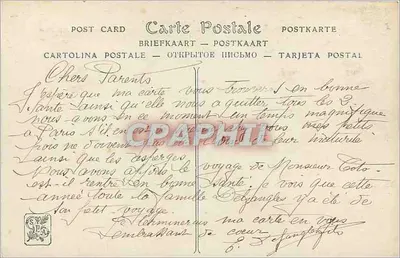 POST CARD Carte Postale POSTKARTE
BRIEFKAART — POSTKAART
CARTOLINA POSTALE — ОТКРЫТОЕ ПИСЬМО — TARJETA POSTAL
Chers Parents
J'espère que ma carte vous trouvera en bonne
Santé ainsi qu'elle nous a quitter tous les 3
nous avons en ce moment un temps magnifique
a Paris s'il en vos petits
pois ne leur
CPARHPI
ainsi que les asperges
Nous avons appris le voyage de Monsieur Toto
est-il rentré en bonne santé. je vois que cette
année toute la famille y a été de
son petit voyage.
Je terminerai ma carte en vous
embrassant de cœur
E.